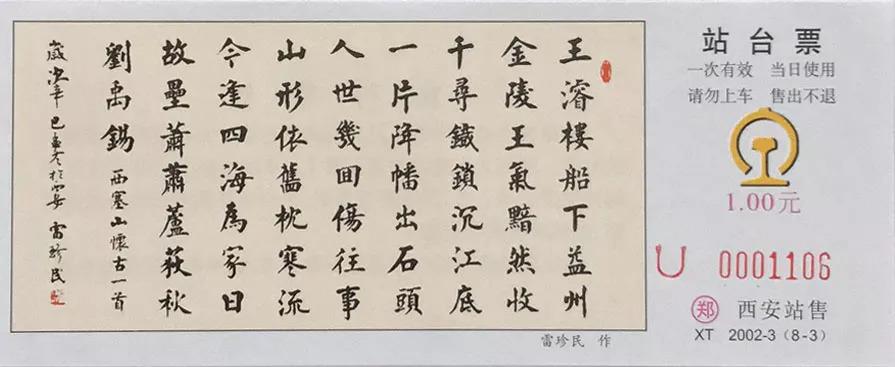 王濬樓船下益州
金陵王氣黯然收
千尋鐵鎖沉江底
一片降幡出石頭
人世幾回傷往事
山形依舊枕寒流
今逢四海為家日
故壘蕭蕭蘆荻秋
劉禹錫 西塞山懷古一首
歲次辛巳孟冬於西安 雷珍民
雷珍民 作
站台票
一次有效 当日使用
请勿上车 售出不退
1.00元
U 0001106
郑 西安站售
XT 2002-3（8-3）